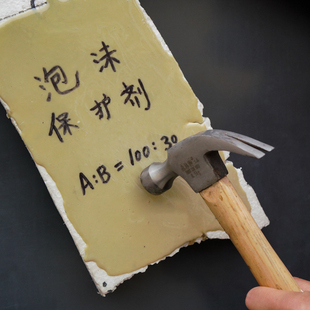 泡沫
保护剂
A:B=100:30